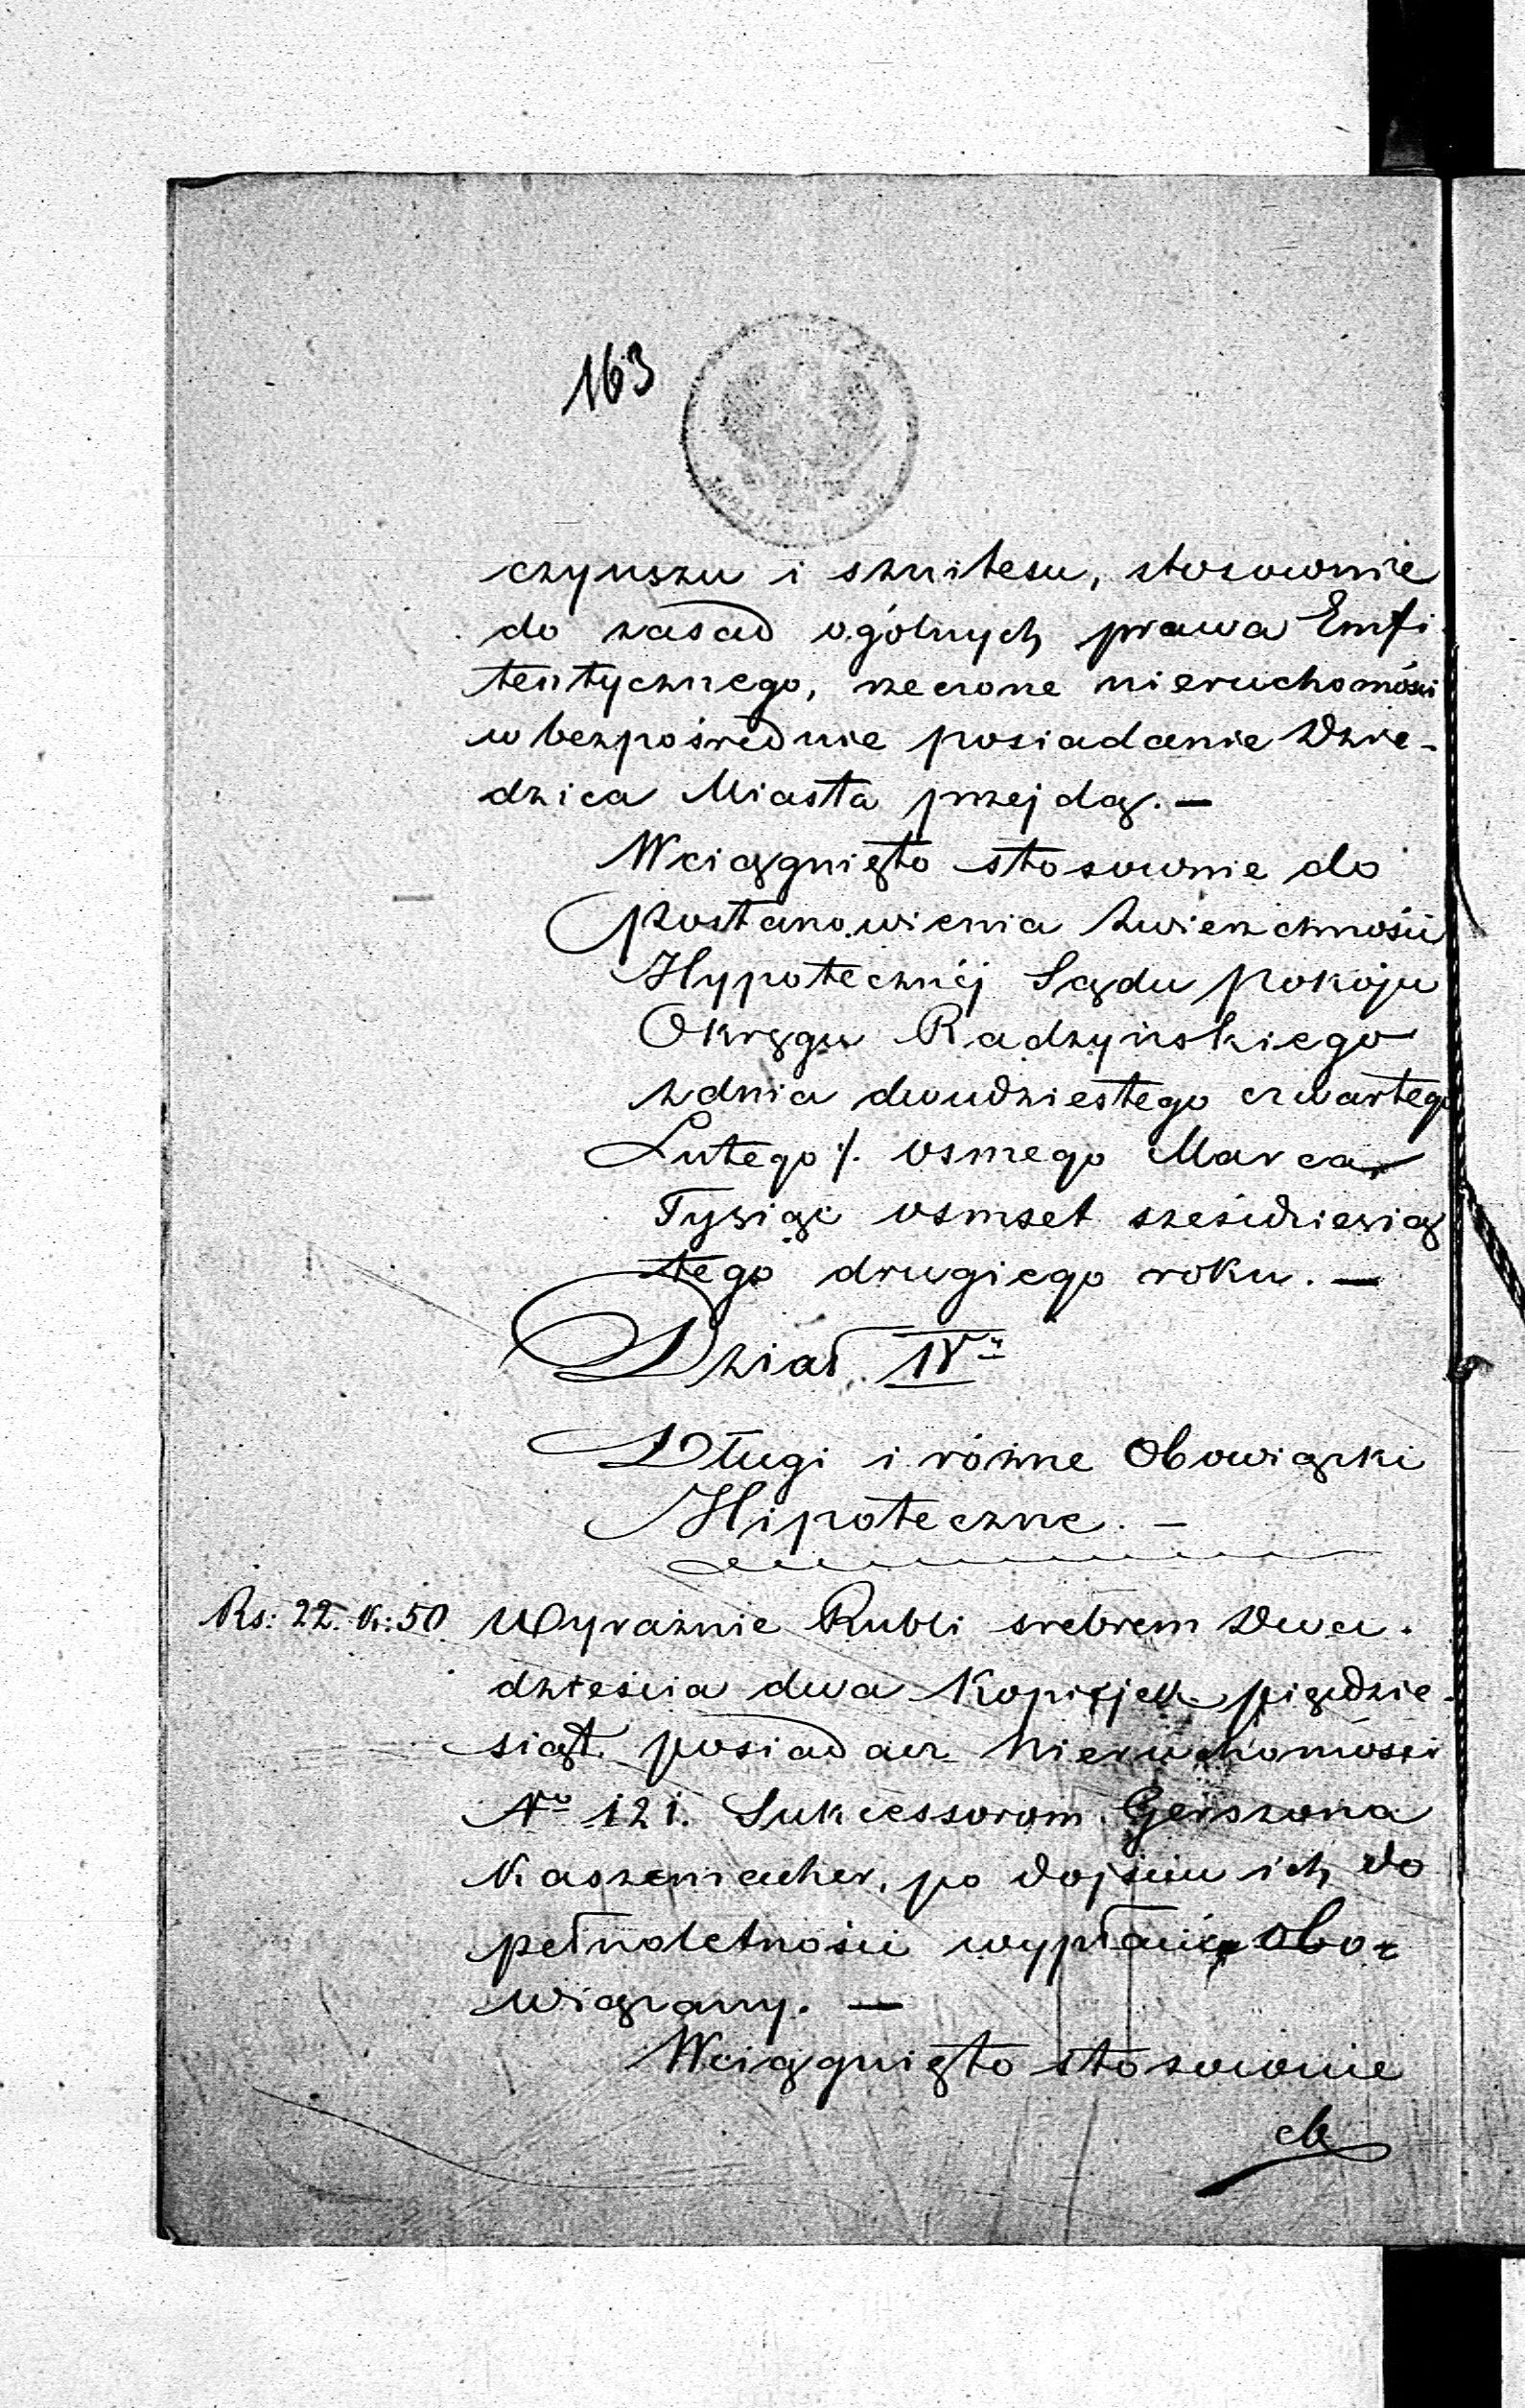 163
czynszu i sznitesu, stosownie
do zasad ogólnych prawa Emfi
teutycznego, rzeczone nieruchomości
w bezpośrednie posiadanie Dzie-
dzica Miasta przejdą. —
Wciągnięto stosownie do
postanowienia Zwierzchności
Hypotecznéj Sądu Pokoju
Okręgu Radzyńskiego
z dnia dwudziestego czwartego
Lutego /. osmego Marca
Tysiąc osmset sześćdziesią
tego drugiego roku. —
Dział IVy
Długi i różne Obowiązki
Hipoteczne. —
Rs: 22. k: 50. Wyraźnie Rubli srebrem Dwa.
dzieścia dwa Kopiejek pięćdzie.
siąt. posiadacz Nieruchomości
No 121. Sukcessorom Gerszona
Kaszemacher, po dojściu ich do
pełnoletności wypłacić obo-
wiązany. —
Wciągnięto stosownie